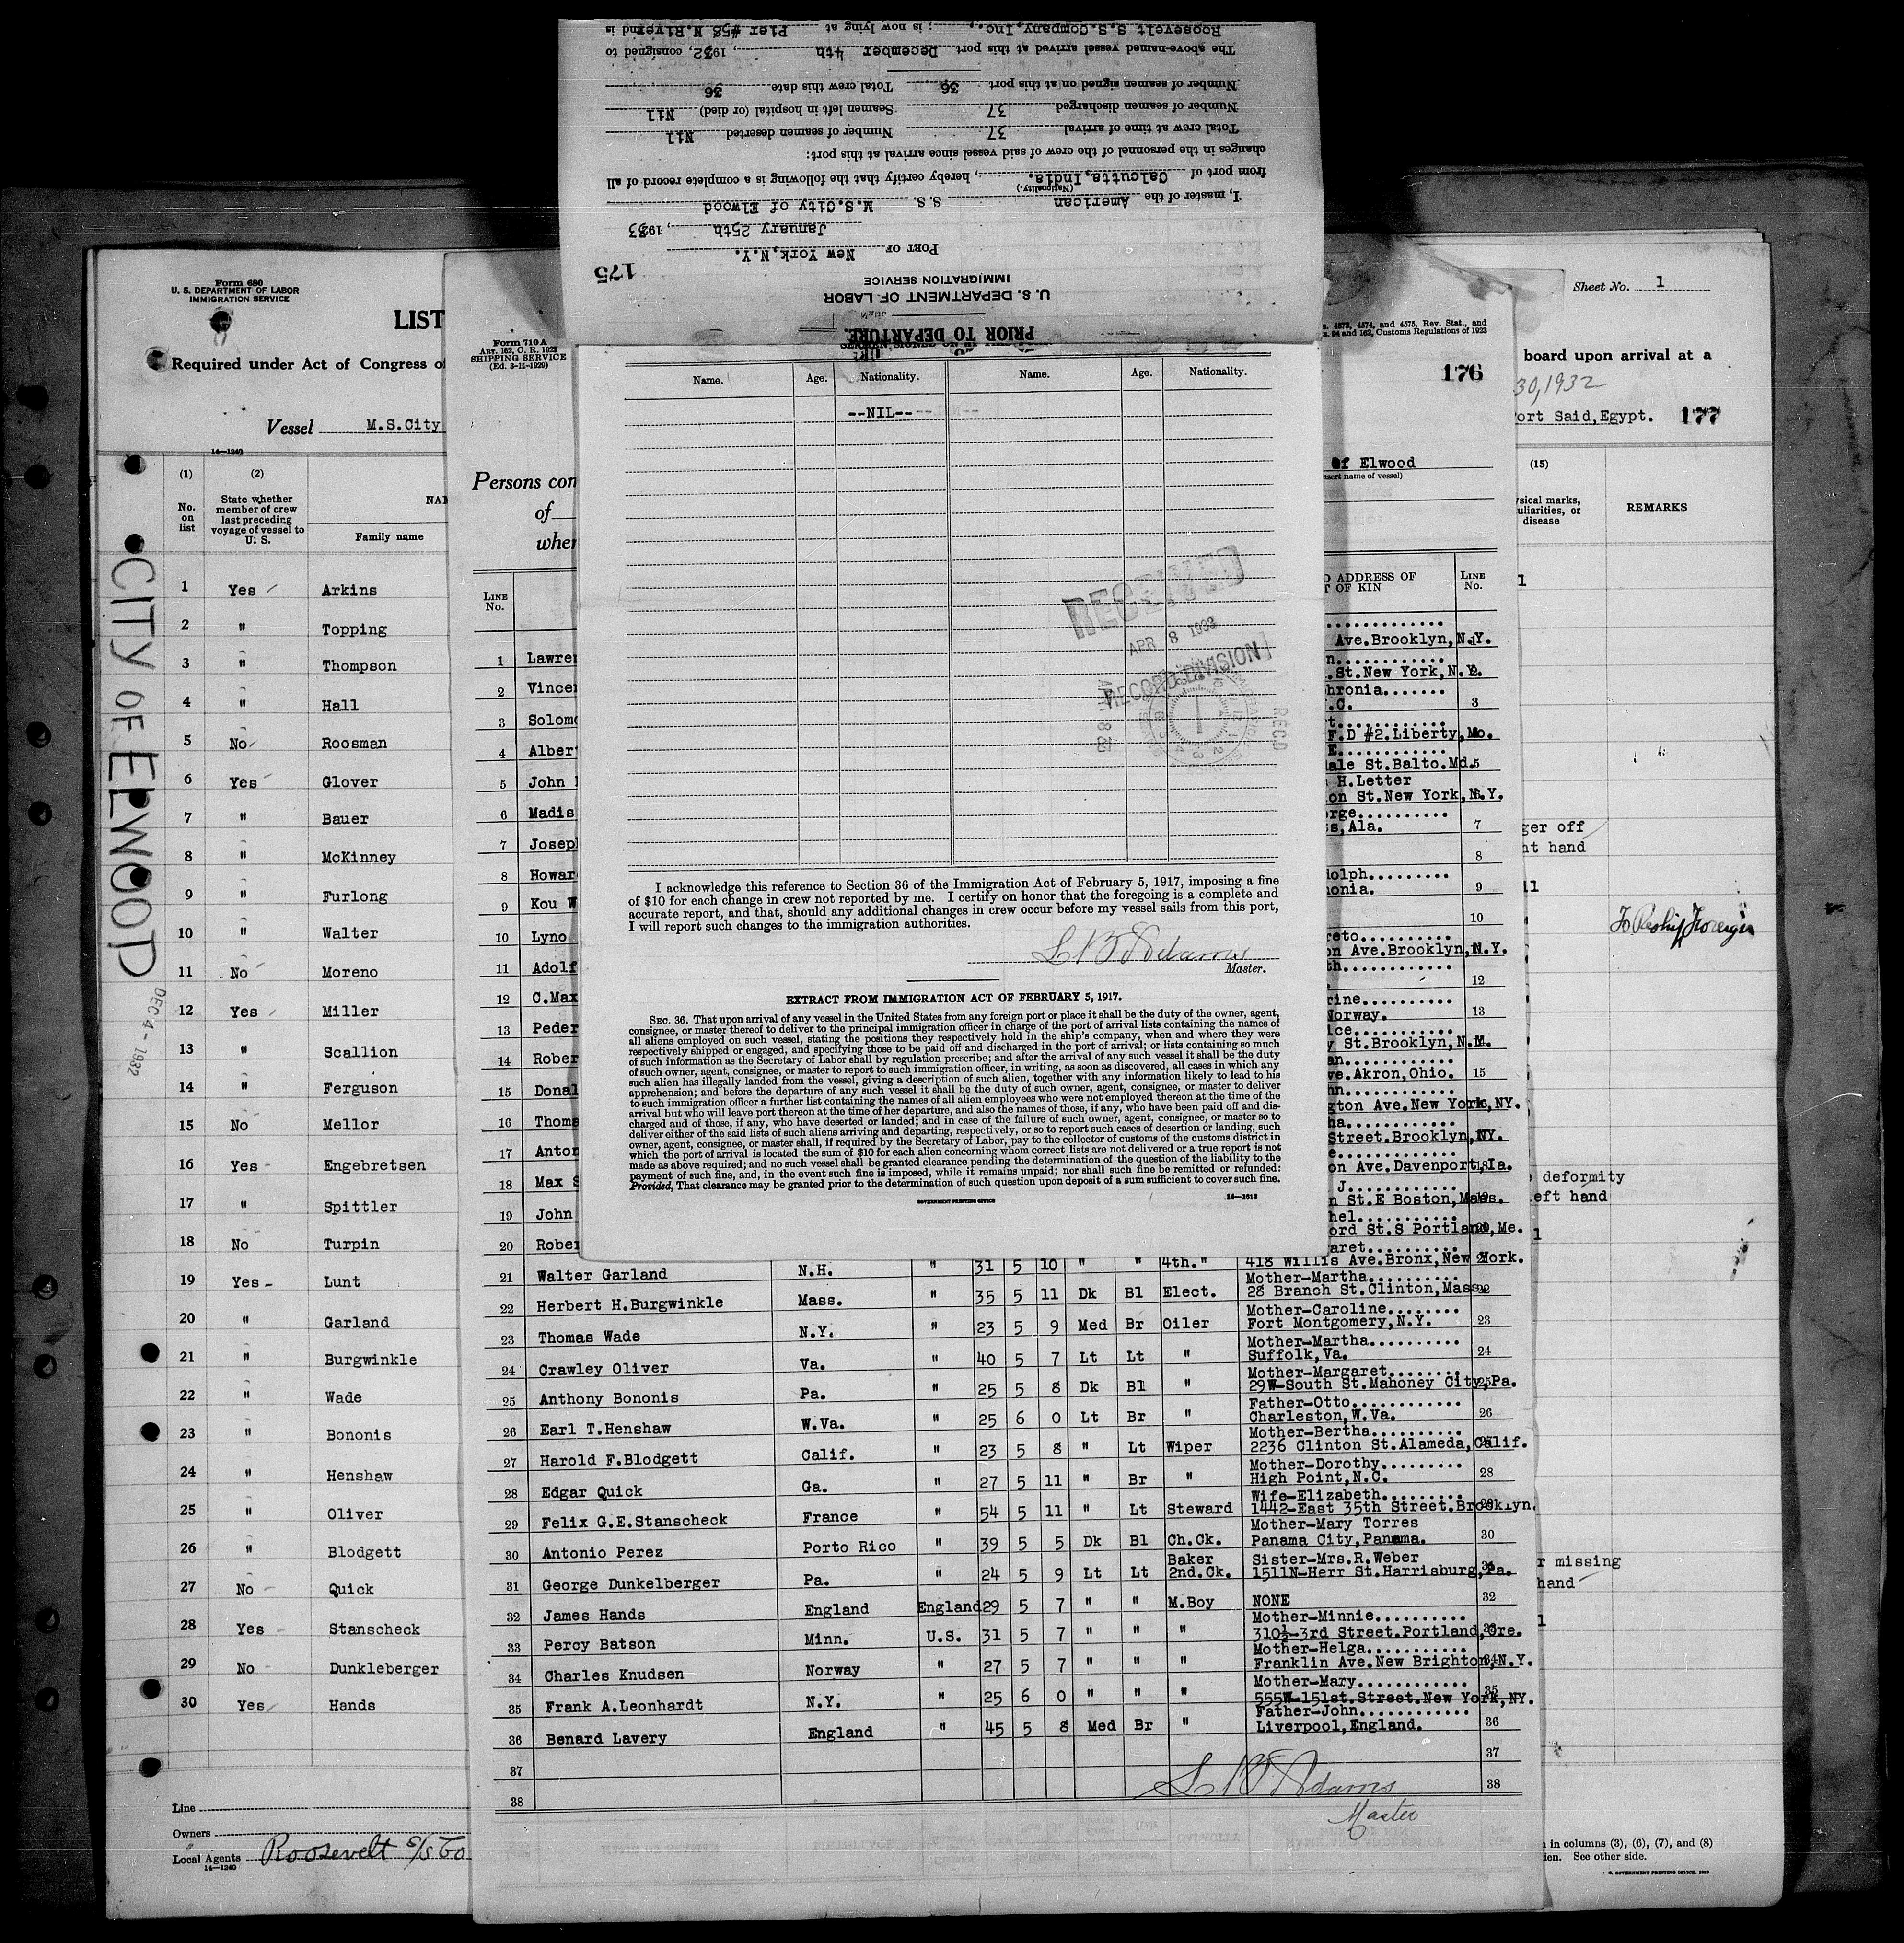 PRIOR TO DEPARTURE.
U. S. DEPARTMENT OF LABOR
IMMIGRATION SERVICE
175
PORT OF New York, N.Y.
January 25th, 1933
I, master of the American S. S. M.S.City of Elwood
(Nationality.)
from port of Calcutta, India., hereby certify that the following is a complete record of all
changes in the personnel of the crew of said vessel since arrival at this port:
Total crew at time of arrival 37 Number of seamen deserted Nil
Number of seamen discharged 37 Seamen left in hospital (or died) Nil
Number of seamen signed on at this port 36 Total crew this date 36
The above-named vessel arrived at this port December 4th, 1932, consigned to
Roosevelt S.S.Company, Inc., ; is now lying at Pier #58 N.River and is
Name. Age. Nationality. Name. Age. Nationality.
--NIL--
RECEIVED
APR 8 1933
RECORD DIVISION
REC'D
I acknowledge this reference to Section 36 of the Immigration Act of February 5, 1917, imposing a fine
of $10 for each change in crew not reported by me. I certify on honor that the foregoing is a complete and
accurate report, and that, should any additional changes in crew occur before my vessel sails from this port,
I will report such changes to the immigration authorities.
Adams
Master.
EXTRACT FROM IMMIGRATION ACT OF FEBRUARY 5, 1917.
SEC. 36. That upon arrival of any vessel in the United States from any foreign port or place it shall be the duty of the owner, agent,
consignee, or master thereof to deliver to the principal immigration officer in charge of the port of arrival lists containing the names of
all aliens employed on such vessel, stating the positions they respectively hold in the ship's company, when and where they were
respectively shipped or engaged, and specifying those to be paid off and discharged in the port of arrival; or lists containing so much
of such information as the Secretary of Labor shall by regulation prescribe; and after the arrival of any such vessel it shall be the duty
of such owner, agent, consignee, or master to report to such immigration officer, in writing, as soon as discovered, all cases in which any
such alien has illegally landed from the vessel, giving a description of such alien, together with any information likely to lead to his
apprehension; and before the departure of any such vessel it shall be the duty of such owner, agent, consignee, or master to deliver
to such immigration officer a further list containing the names of all alien employees who were not employed thereon at the time of the
arrival but who will leave port thereon at the time of her departure, and also the names of those, if any, who have been paid off and dis-
charged and of those, if any, who have deserted or landed; and in case of the failure of such owner, agent, consignee, or master so to
deliver either of the said lists of such aliens arriving and departing, respectively, or so to report such cases of desertion or landing, such
owner, agent, consignee, or master shall, if required by the Secretary of Labor, pay to the collector of customs of the customs district in
which the port of arrival is located the sum of $10 for each alien concerning whom correct lists are not delivered or a true report is not
made as above required; and no such vessel shall be granted clearance pending the determination of the question of the liability to the
payment of such fine, and, in the event such fine is imposed, while it remains unpaid; nor shall such fine be remitted or refunded:
Provided, That clearance may be granted prior to the determination of such question upon deposit of a sum sufficient to cover such fine.
GOVERNMENT PRINTING OFFICE 14—1613
Form 680
U. S. DEPARTMENT OF LABOR
IMMIGRATION SERVICE
LIST
Required under Act of Congress of
Vessel M.S.City
14—1240
(1) (2)
No. on list
State whether member of crew last preceding voyage of vessel to U. S.
Family name
CITY OF ELWOOD
DEC 4 - 1932
1 Yes Arkins
2 " Topping
3 " Thompson
4 " Hall
5 No Roosman
6 Yes Glover
7 " Bauer
8 " McKinney
9 " Furlong
10 " Walter
11 No Moreno
12 Yes Miller
13 " Scallion
14 " Ferguson
15 No Mellor
16 Yes Engebretsen
17 " Spittler
18 No Turpin
19 Yes Lunt
20 " Garland
21 " Burgwinkle
22 " Wade
23 " Bononis
24 " Henshaw
25 " Oliver
26 " Blodgett
27 No Quick
28 Yes Stanscheck
29 No Dunkleberger
30 Yes Hands
Line
Owners
Local Agents Roosevelt S/S Co
14—1240
Form 710 A
ART. 162, C. R. 1923
SHIPPING SERVICE
(Ed. 3-14-1929)
s. 4573, 4574, and 4575, Rev. Stat., and
s. 94 and 162, Customs Regulations of 1923
176
Persons con
of
wher
of Elwood
nsert name of vessel)
LINE No.
D ADDRESS OF
T OF KIN
LINE No.
1 Lawre Ave.Brooklyn,N.Y.
2 Vince .St.New York,N.Y. 2
3 Solomo hronia....... .C. 3
4 Alber F.D #2.Liberty,Mo.
5 John dale St.Balto.Md. 5
6 Madis H.Letter on St.New York,N.Y.
7 Josep rge.......... s,Ala. 7
8 Howar 8
9 Kou W dolph......... nonia. 9
10 Lyno 10
11 Adolf reto.......... on Ave.Brooklyn,N.Y.
12 C.Max th............ 12
13 Peder rine.......... Norway. 13
14 Rober ice........... y St.Brooklyn,N.Y.
15 Donal an............ ve.Akron,Ohio. 15
16 Thoma nn............ gton Ave.New York,NY.
17 Anton ha............ Street.Brooklyn,NY.
18 Max S e............. on Ave.Davenport,Ia.
19 John J............ n St.E Boston,Mass.
20 Rober hel........... ord St.S Portland,Me.
21 Walter Garland N.H. " 31 5 10 " " 4th." aret.......... 418 Willis Ave.Bronx,New York.
22 Herbert H.Burgwinkle Mass. " 35 5 11 Dk Bl Elect. Mother-Martha.......... 28 Branch St.Clinton,Mass. 22
23 Thomas Wade N.Y. " 23 5 9 Med Br Oiler Mother-Caroline........ Fort Montgomery,N.Y. 23
24 Crawley Oliver Va. " 40 5 7 Lt Lt " Mother-Martha.......... Suffolk,Va. 24
25 Anthony Bononis Pa. " 25 5 8 Dk Bl " Mother-Margaret........ 29W-South St.Mahoney City,Pa. 25
26 Earl T.Henshaw W.Va. " 25 6 0 Lt Br " Father-Otto............ Charleston,W.Va. 26
27 Harold F.Blodgett Calif. " 23 5 8 " Lt Wiper Mother-Bertha.......... 2236 Clinton St.Alameda,Calif.
28 Edgar Quick Ga. " 27 5 11 " Br " Mother-Dorothy......... High Point,N.C. 28
29 Felix G.E.Stanscheck France " 54 5 11 " Lt Steward Wife-Elizabeth......... 1442-East 35th Street.Brooklyn.
30 Antonio Perez Porto Rico " 39 5 5 Dk Bl Ch.Ck. Mother-Mary Torres Panama City,Panama. 30
31 George Dunkelberger Pa. " 24 5 9 Lt Lt Baker 2nd.Ck. Sister-Mrs.R.Weber 1511N-Herr St.Harrisburg,Pa. 31
32 James Hands England England 29 5 7 " " M.Boy NONE 32
33 Percy Batson Minn. U.S. 31 5 7 " " " Mother-Minnie.......... 310½-3rd Street.Portland,Ore. 33
34 Charles Knudsen Norway " 27 5 7 " " " Mother-Helga........... Franklin Ave.New Brighton,N.Y. 34
35 Frank A.Leonhardt N.Y. " 25 6 0 " " " Mother-Mary............ 555W-151st.Street.New York,NY. 35
36 Benard Lavery England " 45 5 8 Med Br " Father-John............ Liverpool,England. 36
37 37
38 38
Adams
Master
Sheet No. 1
board upon arrival at a
30, 1932
Port Said,Egypt. 177
(15)
ysical marks,
uliarities, or
disease
REMARKS
ger off
ht hand
To Reship Foreign
deformity
left hand
r missing
hand
in columns (3), (6), (7), and (8)
ien. See other side.
GOVERNMENT PRINTING OFFICE